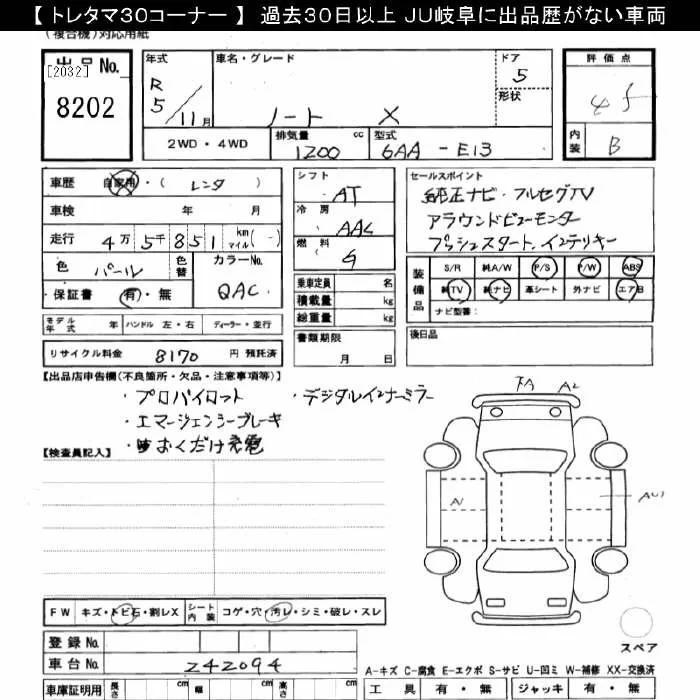 【 トレタマ30コーナー 】 過去30日以上 JU岐阜に出品歴がない車両
(複合機)対応用紙
出品No.
[2032]
8202
年式
R
5/11月
車名・グレード
ノート X
ドア
5
形状
評価点
内装
B
2WD・4WD
排気量 cc
1200
型式
6AA - E13
車歴 自家用・( レンタ )
車検 年 月
走行 4万5千851 km マイル(-)
色 パール
色替
カラーNo.
QAC
保証書 有・無
モデル年式 年 ハンドル 左・右 ディーラー・並行
リサイクル料金 8170 円 預託済
シフト
AT
冷房
AAC
燃料
G
乗車定員 名
積載量 kg
総重量 kg
書類期限
月 日
セールスポイント
純正ナビ・フルセグTV
アラウンドビューモニター
プッシュスタート、インテリキー
装備品
S/R 純A/W P/S P/W ABS
純TV 純ナビ 革シート 外ナビ エアB
ナビ型番:
後日品
【出品店申告欄(不良箇所・欠品・注意事項等)】
・プロパイロット ・デジタルインナーミラー
・エマージェンシーブレーキ
・おくだけ充電
【検査員記入】
A2
A1
AU1
FW キズ・トビ石・割レX シート内装 コゲ・穴・汚レ・シミ・破レ・スレ
登録No.
車台No. 242094
スペア
A-キズ C-腐食 E-エクボ S-サビ U-凹ミ W-補修 XX-交換済
車庫証明用 長さ cm 幅 cm 高さ cm
工具 有・無 ジャッキ 有・無